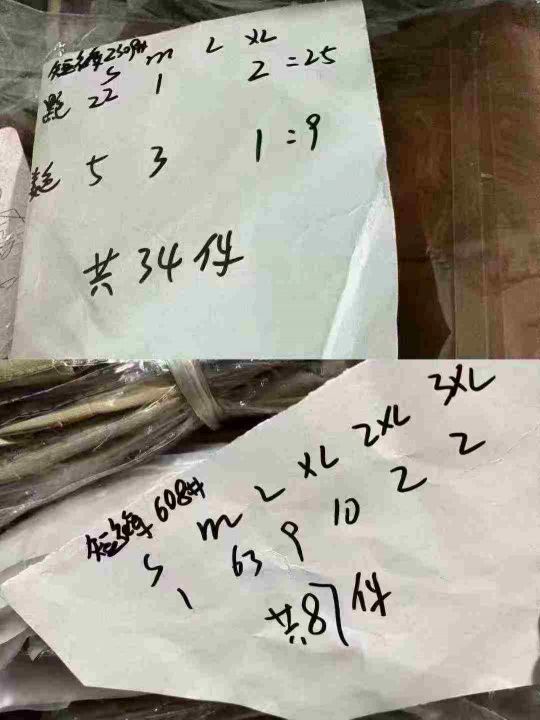 短袖2309#
S m L XL
黑色 22 1 2 =25
5 3 1 =9
共34件
短袖608#
S m L XL 2XL 3XL
1 63 9 10 2 2
共87件